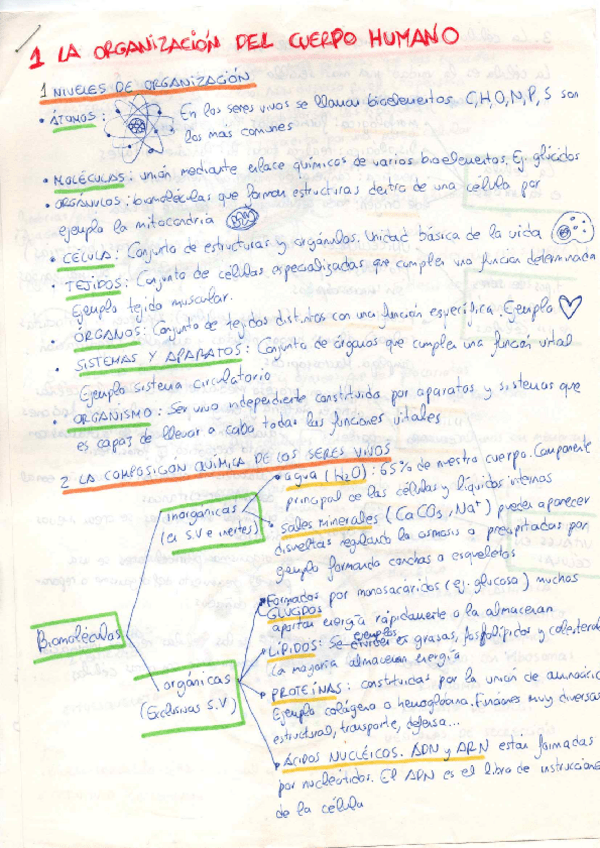 1 LA ORGANIZACIÓN DEL CUERPO HUMANO
1 NIVELES DE ORGANIZACIÓN
• ÁTOMOS: En los seres vivos se llaman bioelementos. C,H,O,N,P,S son
los más comunes
• MOLÉCULAS: unión mediante enlace químicos de varios bioelementos. Ej. glúcidos
• ORGÁNULOS: biomoléculas que forman estructuras dentro de una célula por
ejemplo la mitocondria
• CÉLULA: Conjunto de estructuras y orgánulos. Unidad básica de la vida
• TEJIDOS: Conjunto de células especializadas que cumplen una función determinada
Ejemplo tejido muscular.
• ÓRGANOS: Conjunto de tejidos distintos con una función específica. Ejemplo
• SISTEMAS Y APARATOS: Conjunto de órganos que cumplen una función vital
Ejemplo sistema circulatorio
• ORGANISMO: Ser vivo independiente constituido por aparatos y sistemas que
es capaz de llevar a cabo todas las funciones vitales
2 LA COMPOSICIÓN QUÍMICA DE LOS SERES VIVOS
Biomoléculas
inorgánicas
(en S.V e inertes)
• agua (H2O): 65% de nuestro cuerpo. Componente
principal de las células y líquidos internos
• sales minerales (CaCO3, Na+) pueden aparecer
disueltas regulando la osmosis o precipitadas por
ejemplo formando conchas o esqueletos
orgánicas
(Exclusivas S.V)
• Formados por monosacáridos (ej. glucosa) muchos
GLÚCIDOS
aportan energía rápidamente o la almacenan
• LÍPIDOS: Se dividen ejemplos grasas, fosfolípidos y colesterol
La mayoría almacenan energía
• PROTEÍNAS: constituidas por la unión de aminoácidos
Ejemplo colágeno o hemoglobina. Funciones muy diversas
estructural, transporte, defensa...
• ÁCIDOS NUCLÉICOS. ADN y ARN están formadas
por nucleótidos. El ADN es el libro de instrucciones
de la célula